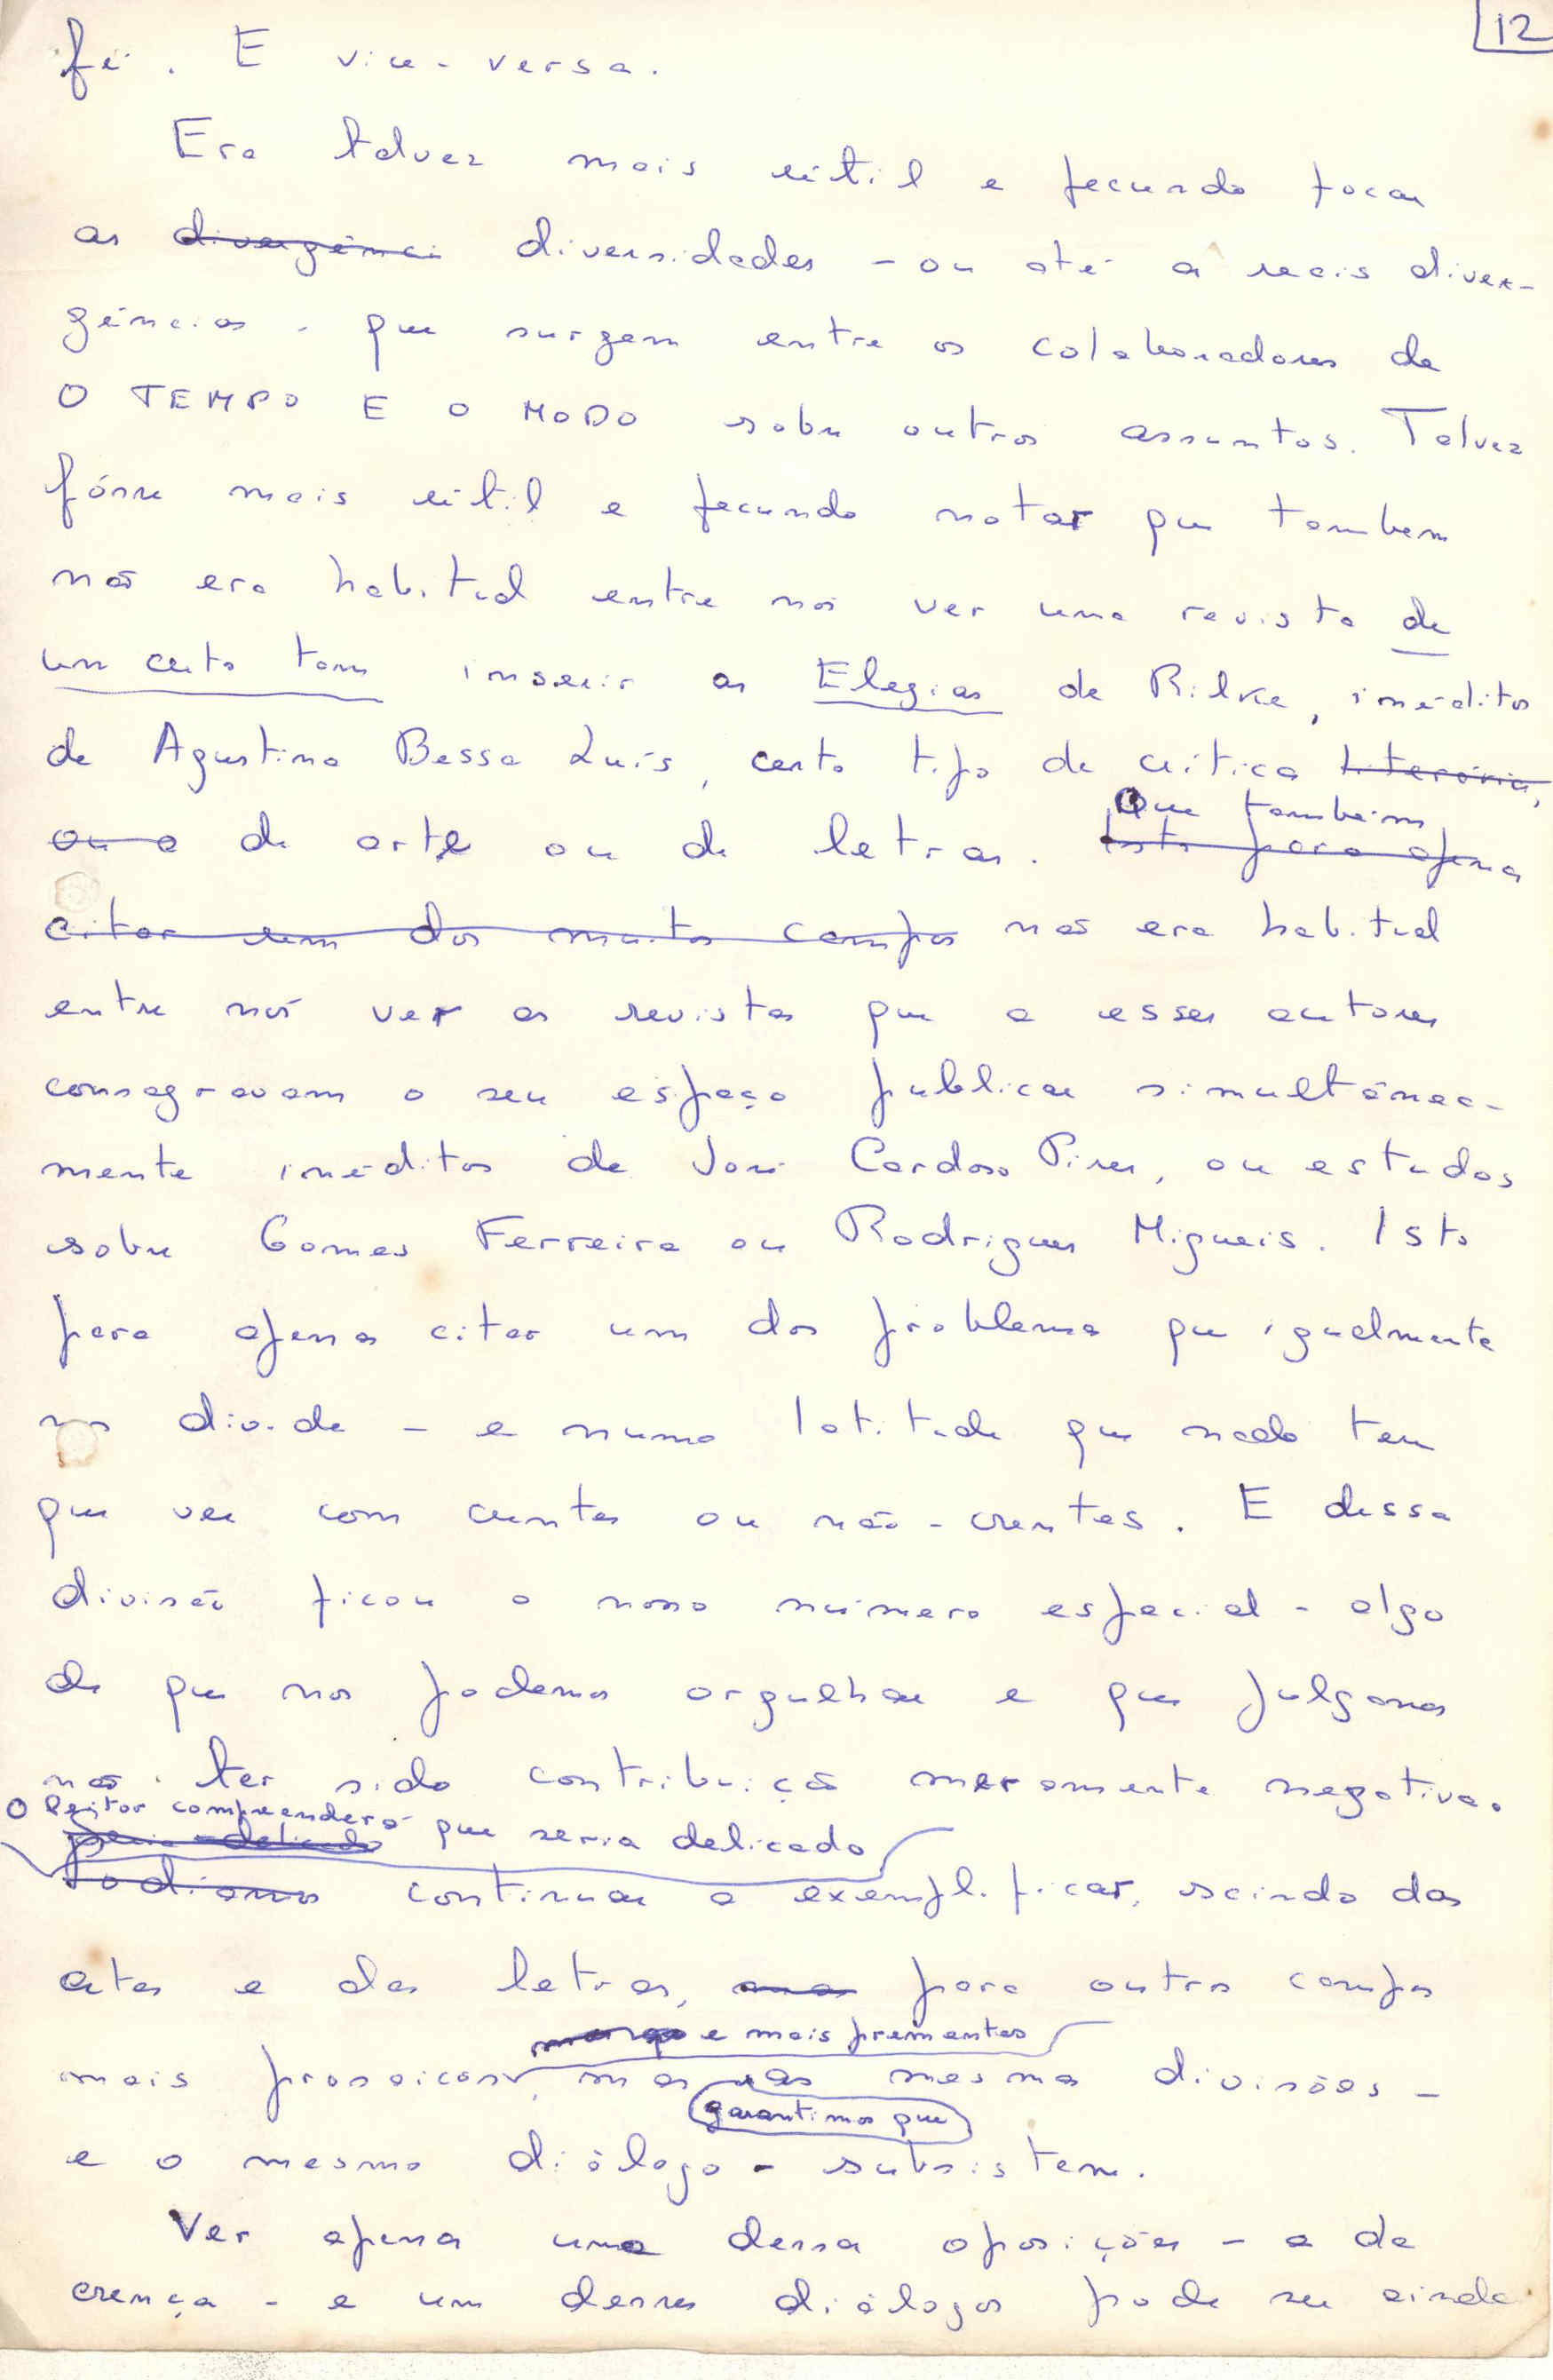 12
fé. E vice-versa.
Era talvez mais útil e fecundo focar
as divergênci diversidades - ou até as reais diver-
gências - que surgem entre os colaboradores de
O TEMPO E O MODO sobre outros assuntos. Talvez
fôsse mais útil e fecundo notar que tambem
não era habitual entre nós ver uma revista de
um certo tom inserir as Elegias de Rilke, inéditos
de Agustina Bessa Luís, certo tipo de crítica literária,
ou a de arte ou de letras. Isto para apenas
Que também
citar um dos muitos campos não era habitual
entre nós ver as revistas que a esses autores
consagravam o seu espaço publicar simultânea-
mente inéditos de José Cardoso Pires, ou estudos
sobre Gomes Ferreira ou Rodrigues Migueis. Isto
para apenas citar um dos problemas que igualmente
nos divide - e numa latitude que nada tem
que ver com crentes ou não-crentes. E dessa
divisão ficou o nosso número especial - algo
de que nos podemos orgulhar e que julgamos
não ter sido contribuição meramente negativa.
O leitor compreenderá que seria delicado
seria delicado
Podiamos continuar a exemplificar, saindo das
artes e das letras, mas para outros campos
e mais prementes
mais prosaicos, mas as mesmas divisões -
garantimos que
e o mesmo diálogo - subsistem.
Ver apenas uma dessas oposições - a da
crença - e um desses diálogos pode ser ainda